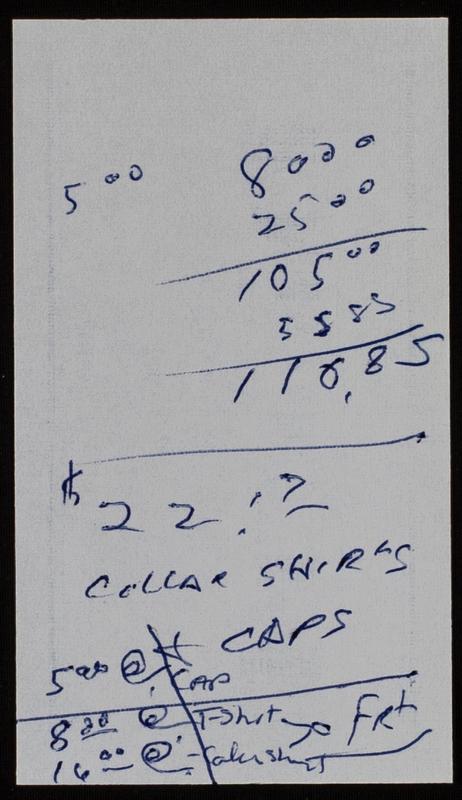 5 00 80 00
25 00
105 00
5 5 85
116.85
$ 22 !?
COLLAR SHIRTS
+ CAPS
5 00 @ CAP
8 00 @ T-Shirt FRt
16 00 @